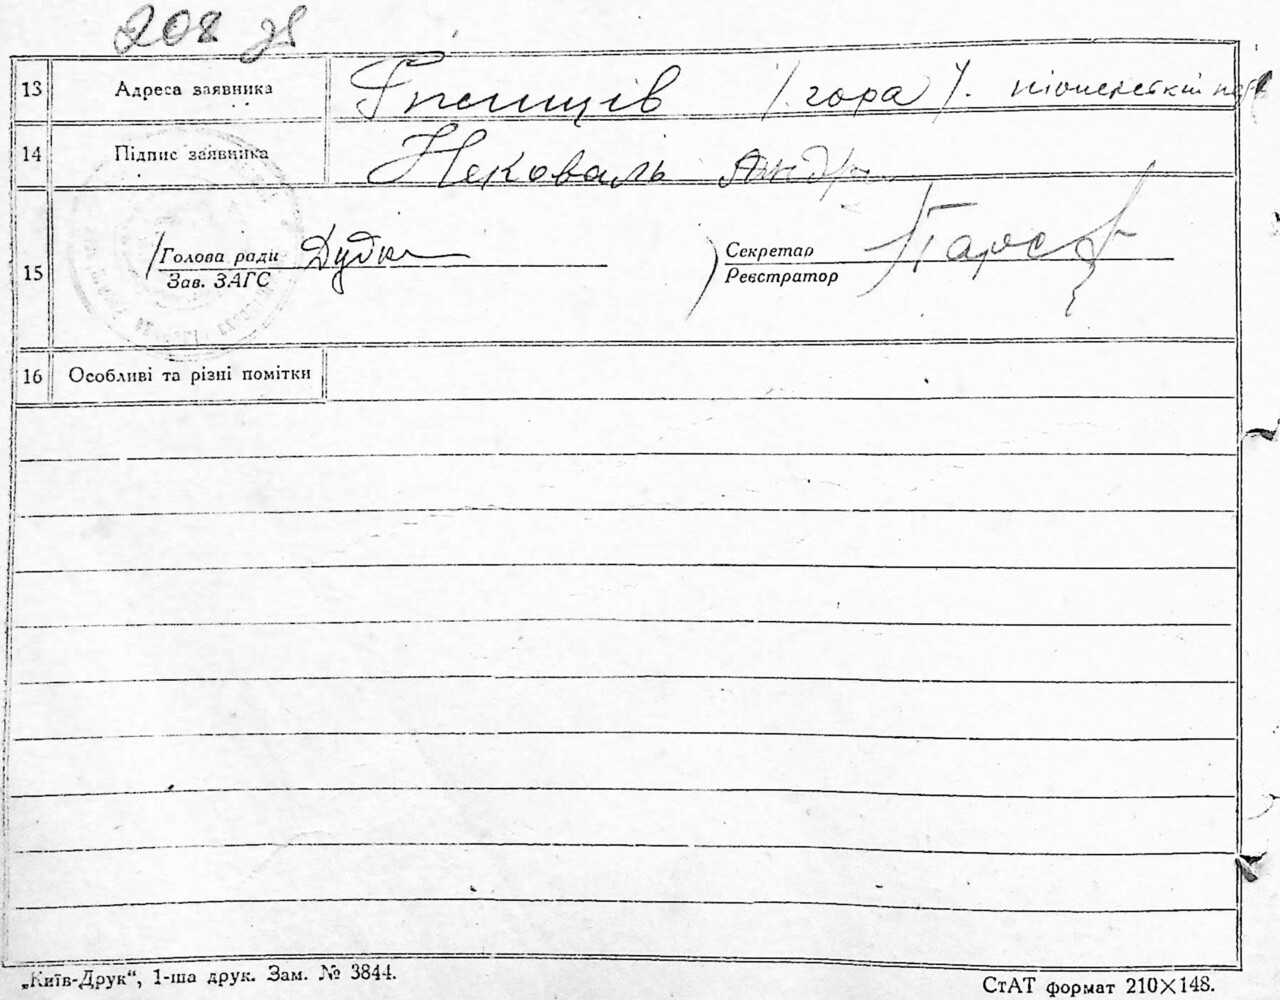 208 зв
13 Адреса заявника Гнєнщів /. гора /. піонерський пер
14 Підпис заявника Нековаль Андр
15 Голова ради Дудка Секретар
Зав. ЗАГС Реєстратор
16 Особливі та різні помітки
„Київ-Друк“, 1-ша друк. Зам. № 3844. СтАТ формат 210×148.